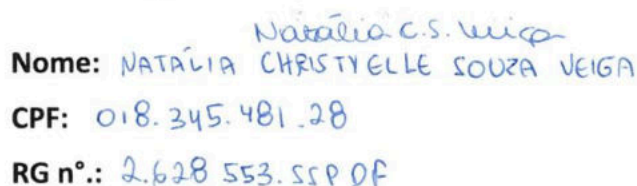 Natália C.S. Veiga
Nome: NATÁLIA CHRISTYELLE SOUZA VEIGA
CPF: 018.345.481.28
RG n°.: 2.628 553. SSP DF